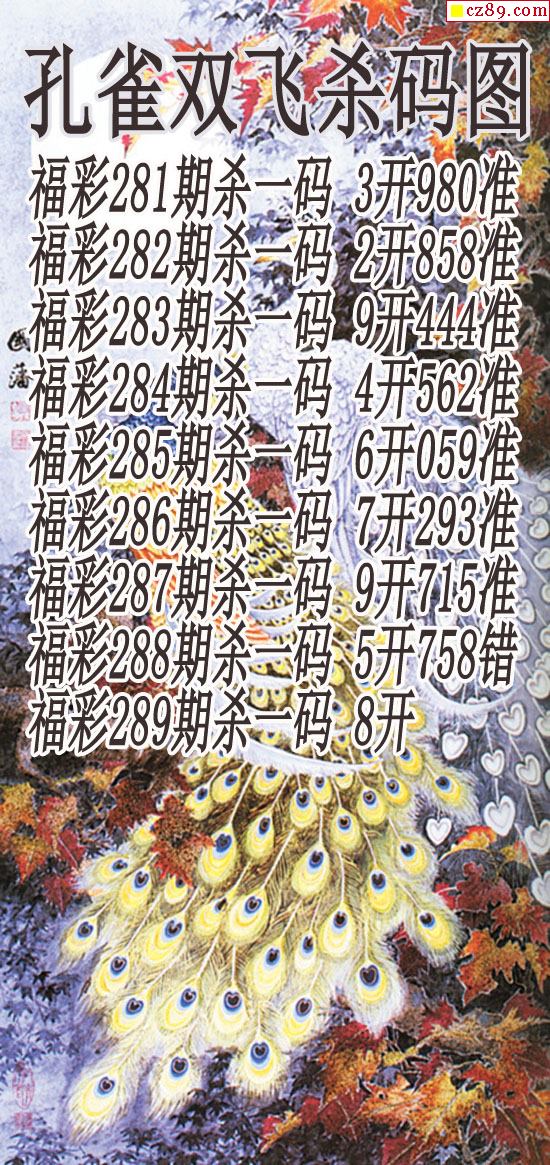 cz89.com
孔雀双飞杀码图
福彩281期杀一码 3开980准
福彩282期杀一码 2开858准
福彩283期杀一码 9开444准
福彩284期杀一码 4开562准
福彩285期杀一码 6开059准
福彩286期杀一码 7开293准
福彩287期杀一码 9开715准
福彩288期杀一码 5开758错
福彩289期杀一码 8开